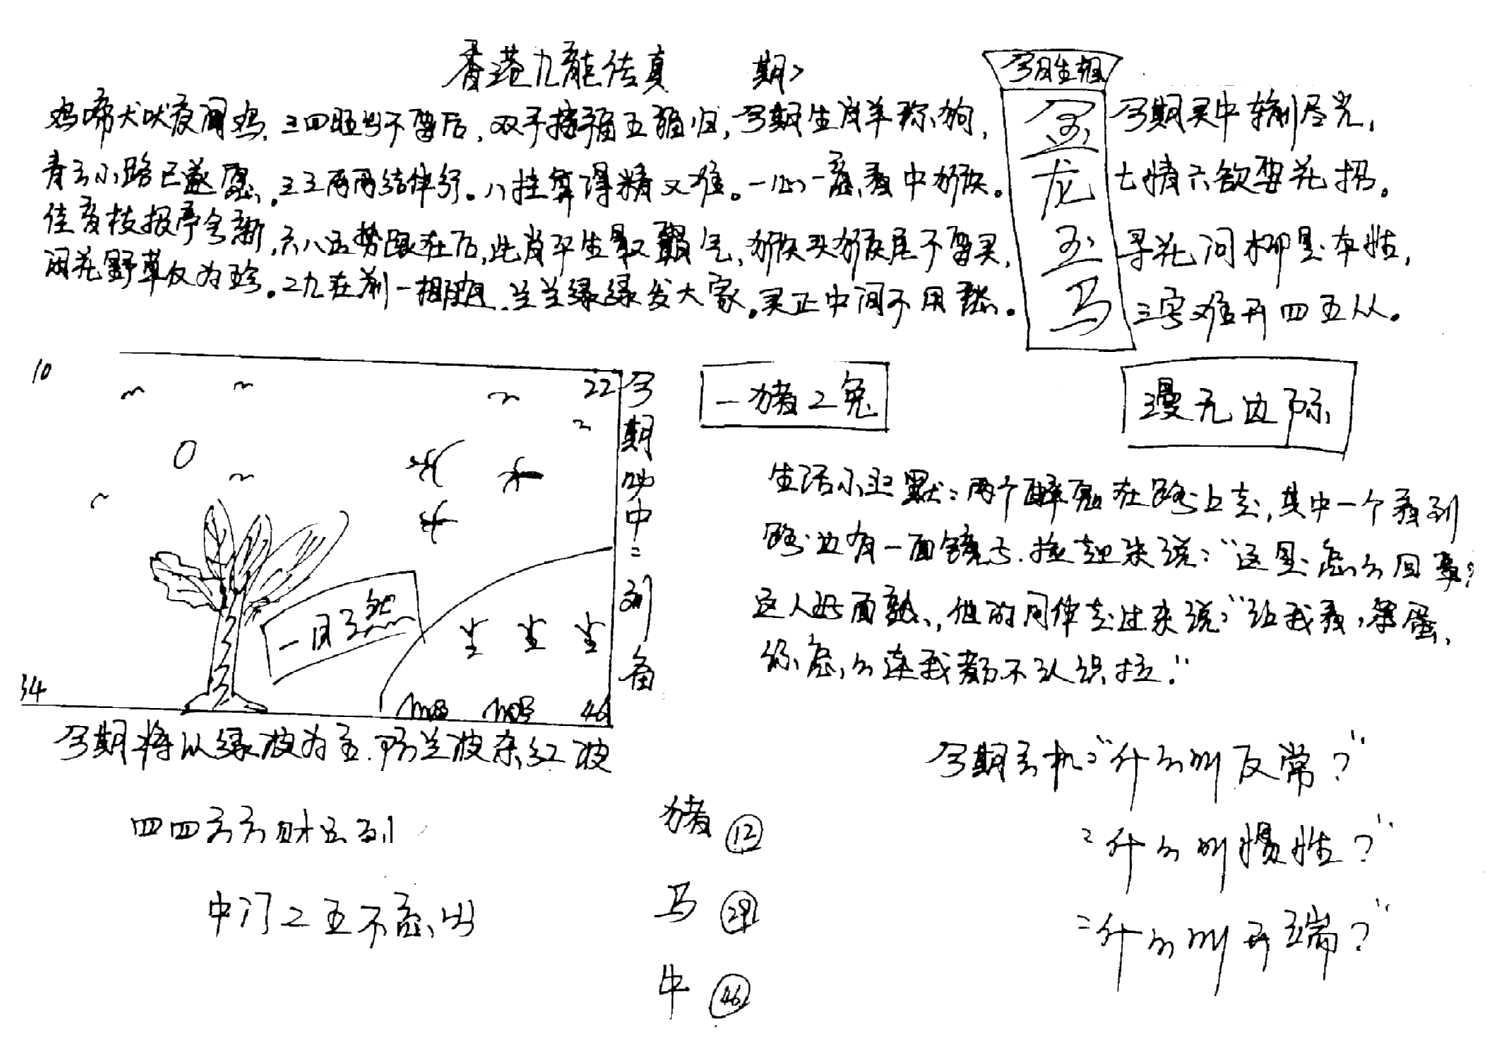 香港九龍传真 期>
今日生相
鸡啼犬吠夜闻鸡,三四旺出不留后,双手捧福五福归,今期生肖羊称狗,
青云小路已遂愿,三三两两结伴行。八挂算得精又准。一心一意看中猴。
佳音枝报亭今新,六八五势跟在后,此肖平生最聚气,猴头猴尾不留买,
闲花野草仅为珍。二九在前一相随,兰兰绿绿发大家,买正中间不用愁。
金龙玉马
今期买中输尽光,
七情六欲要花招。
寻花问柳是本性,
三字难开四五从。
10
22
34
46
今期必中二到备
一目了然
一猪2兔
漫无边际
生活小幽默:两个醉鬼在路上走,其中一个看到
路边有一面镜子.捡起来说:"这是怎么回事?
这人好面熟,他的同伴走过来说:"让我看,笨蛋,
你怎么连我都不认识拉."
今期将以绿波为主.防兰波杂红波
四四方方财 到
中门2五不 出
猪 12
马 29
牛 46
今期玄机"什么叫反常?"
="什么叫惯性?"
="什么叫开端?"